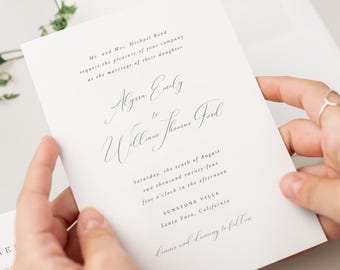 Mr. and Mrs. Michael Bond
request the pleasure of your company
at the marriage of their daughter
Alyssa Emily
to
William Thomas Ford
Saturday, the tenth of August
two thousand twenty-four
five o'clock in the afternoon
SUNSTONE VILLA
Santa Ynez, California
dinner and dancing to follow